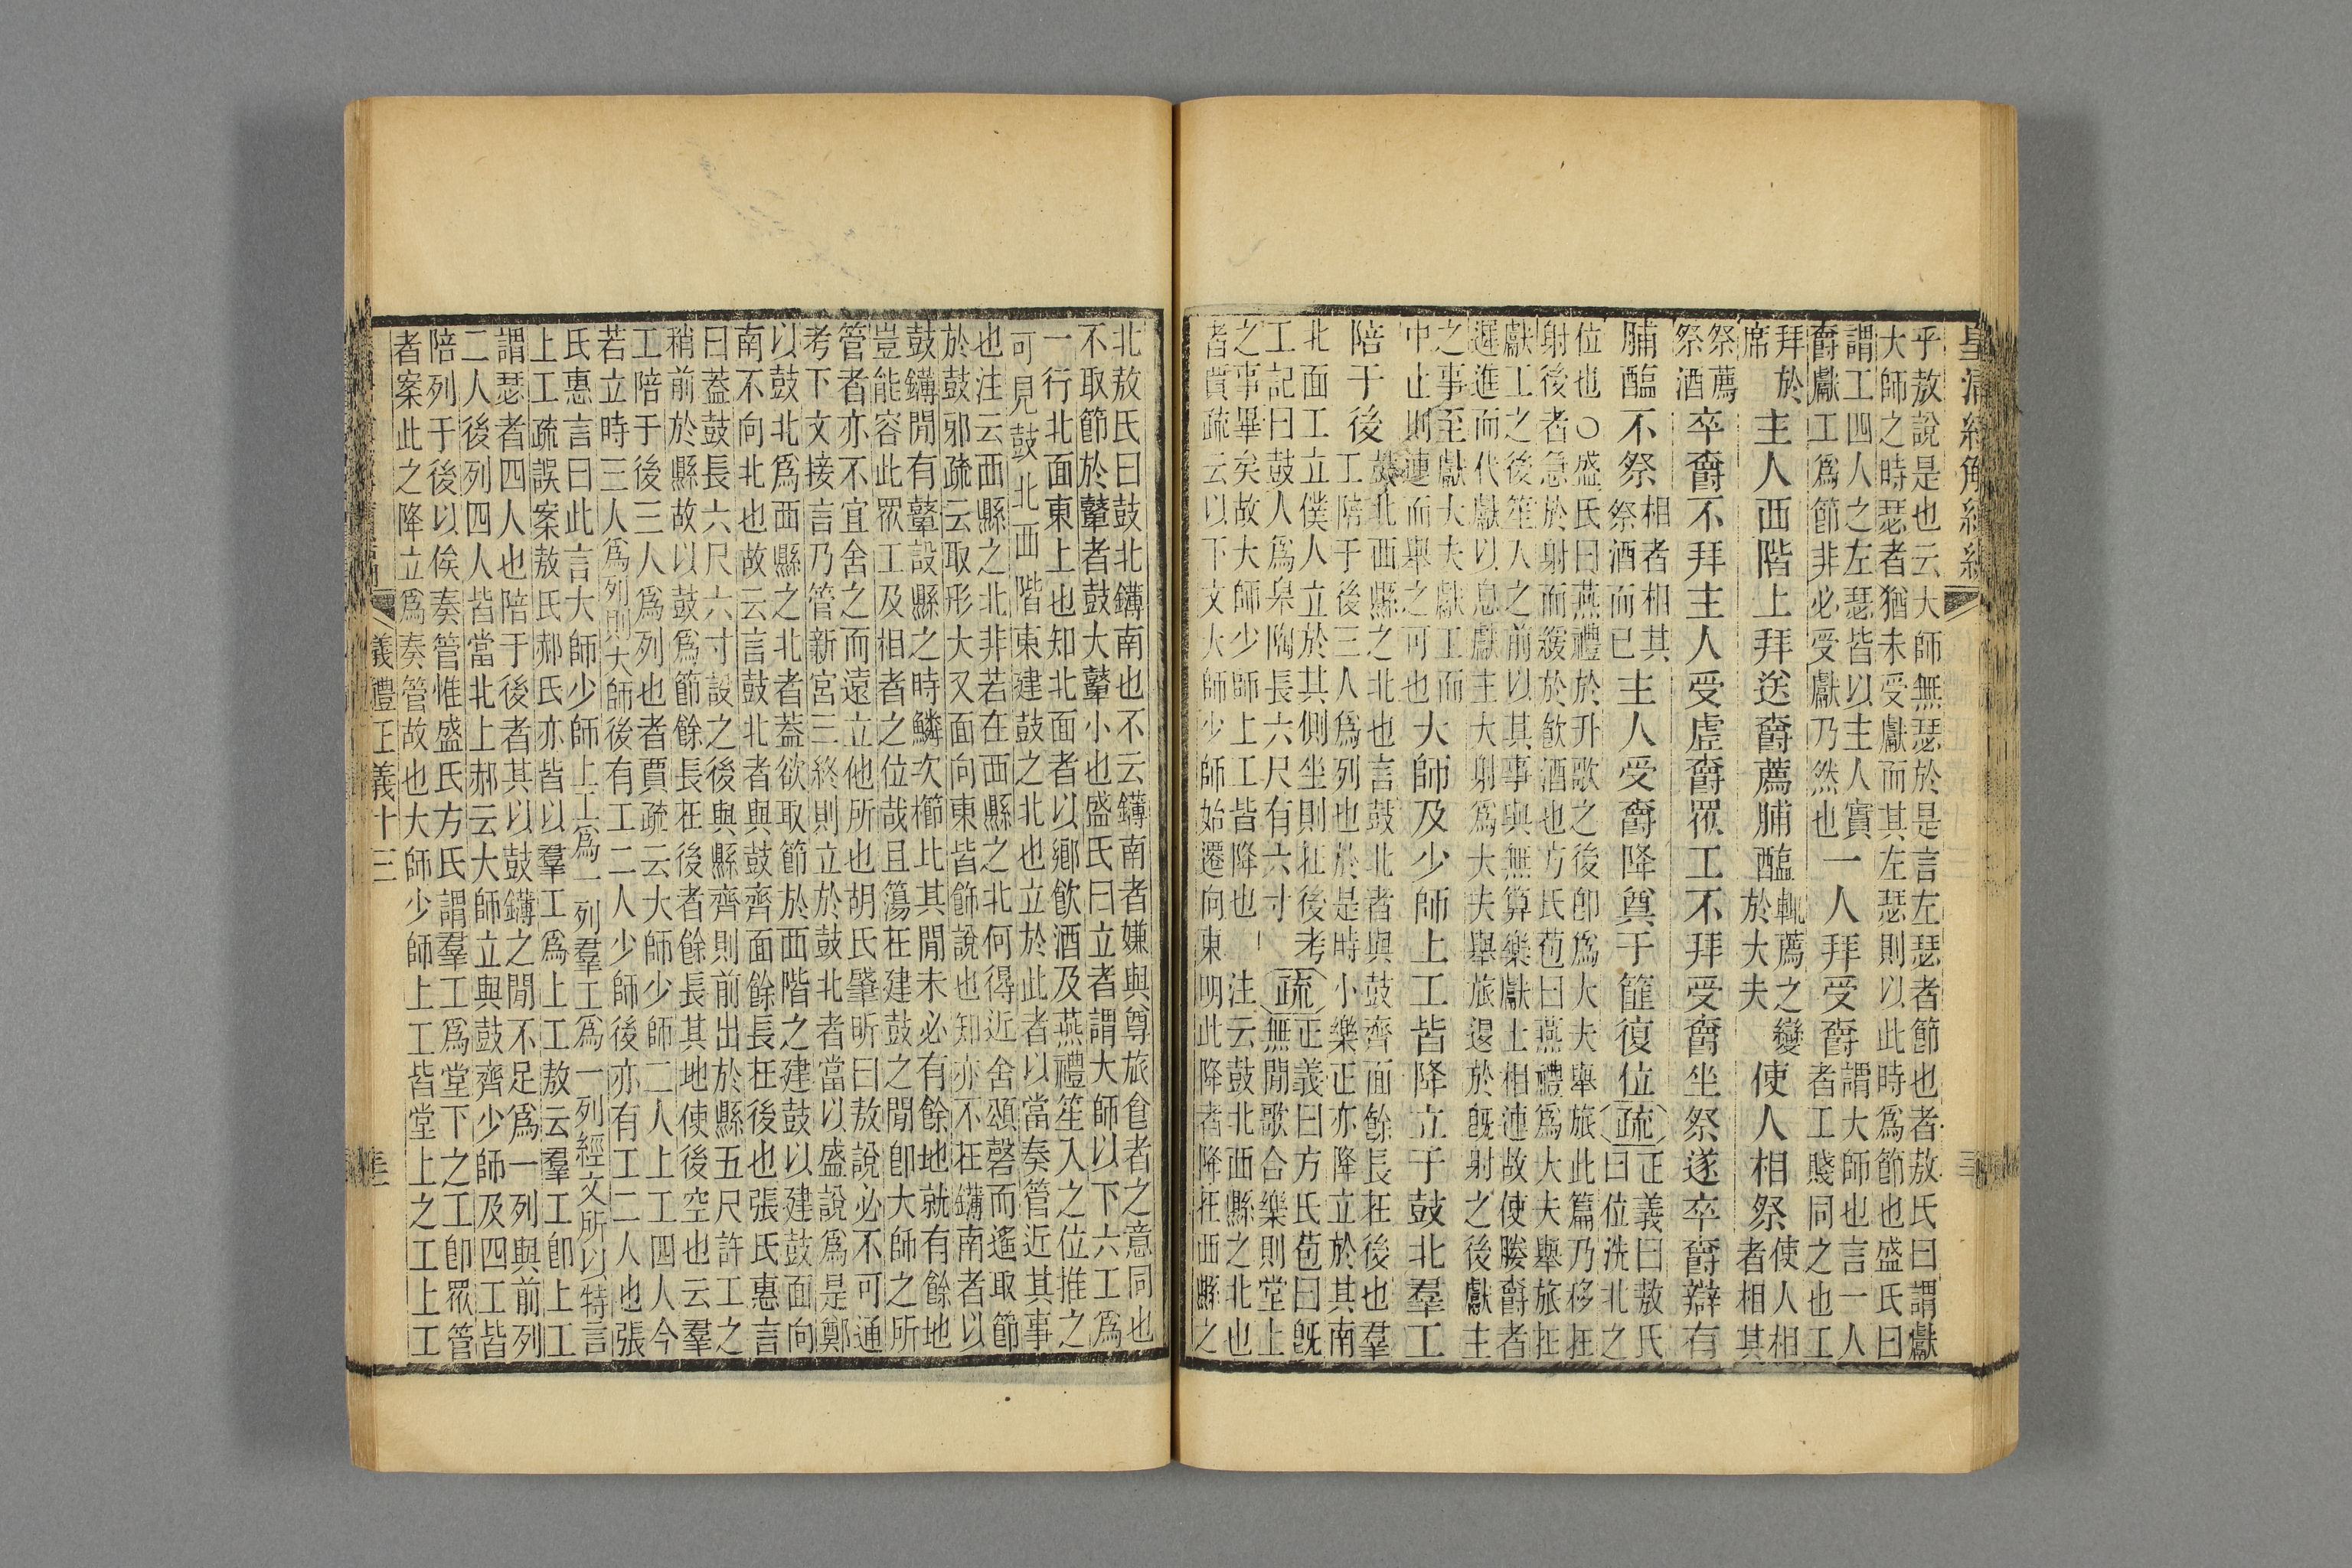 皇清經解續編
乎敖說是也云大師無瑟於是言左瑟者節也者敖氏曰謂獻
大師之時瑟者猶未受獻而其左瑟則以此時爲節也盛氏曰
謂工四人之左瑟皆以主人實
爵獻工爲節非必受獻乃然也
一人拜受爵
謂大師也言一人
者工賤同之也工
拜於
席
主人西階上拜送爵薦脯醢
輒薦之變
於大夫
使人相祭
使人相
者相其
祭薦
祭酒
卒爵不拜主人受虛爵眾工不拜受爵坐祭遂卒爵辯有
脯醢不祭
相者相其
祭酒而已
主人受爵降奠于篚復位
疏
正義曰敖氏
曰位洗北之
位也○盛氏曰燕禮於升歌之後卽爲大夫舉旅此篇乃移在
射後者急於射而緩於飲酒也方氏苞曰燕禮爲大夫舉旅在
獻工之後笙入之前以其事與無算樂獻士相連故使媵爵者
遲進而代獻以息獻主大射爲大夫舉旅退於旣射之後獻主
之事至獻大夫獻工而
中止則連而舉之可也
大師及少師上工皆降立于鼓北羣工
陪于後
鼓北西縣之北也言鼓北者與鼓齊面餘長在後也羣
工陪于後三人爲列也於是時小樂正亦降立於其南
北面工立僕人立於其側坐則在後考
工記曰鼓人爲皋陶長六尺有六寸
疏
正義曰方氏苞曰旣
無閒歌合樂則堂上
之事畢矣故大師少師上工皆降也 注云鼓北西縣之北也
者賈疏云以下文大師少師始遷向東明此降者降在西縣之
北敖氏曰鼓北鑮南也不云鑮南者嫌與尊旅食者之意同也
不取節於鼙者鼓大鼙小也盛氏曰立者謂大師以下六工爲
一行北面東上也知北面者以鄉飲酒及燕禮笙入之位推之
可見鼓北西階東建鼓之北也立於此者以當奏管近其事
也注云西縣之北非若在西縣之北何得近舍頌磬而遙取節
於鼓邪疏云取形大又面向東皆飾說也知亦不在鑮南者以
鼓鑮閒有鼙設縣之時鱗次櫛比其閒未必有餘地就有餘地
豈能容此眾工及相者之位哉且簜在建鼓之閒卽大師之所
管者亦不宜舍之而遠立他所也胡氏肇昕曰敖說必不可通
考下文接言乃管新宮三終則立於鼓北者當以盛說爲是鄭
以鼓北爲西縣之北者蓋欲取節於西階之建鼓以建鼓面向
南不向北也故云言鼓北者與鼓齊面餘長在後也張氏惠言
曰蓋鼓長六尺六寸設之後與縣齊則前出於縣五尺許工之
稍前於縣故以鼓爲節餘長在後者餘長其地使後空也云羣
工陪于後三人爲列也者賈疏云大師少師二人上工四人今
若立時三人爲列則大師後有工二人少師後亦有工二人也張
氏惠言曰此言大師少師上工爲一列羣工爲一列經文所以特言
上工疏誤案敖氏郝氏亦皆以羣工爲上工敖云羣工卽上工
謂瑟者四人也陪于後者其以鼓鑮之閒不足爲一列與前列
二人後列四人皆當北上郝云大師立與鼓齊少師及四工皆
陪列于後以俟奏管惟盛氏方氏謂羣工爲堂下之工卽眾管
者案此之降立爲奏管故也大師少師上工皆堂上之工上工
儀禮正義十三
三